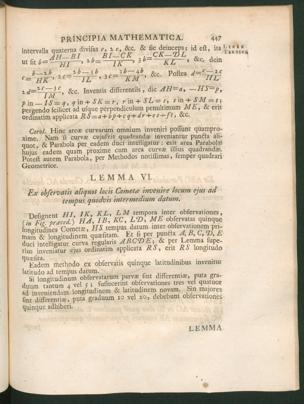 PRINCIPIA MATHEMATICA. 447
intervalla quaterna divisa c, 2c, &c. & sic deinceps: id est, ita
ut sit b = AH−BI / HI, 2b = BI−CK / IK, 3b = CK−DL / KL, &c. dein
c = b−2b / HK, 2c = 2b−3b / IL, 3c = 3b−4b / KM, &c. Postea d = c−2c / HL
2d = 2c−3c / IM, &c. Inventis differentiis, dic AH=a, −HS=p,
p in −IS=q, q in +SK=r, r in +SL=s, s in +SM=t;
pergendo scilicet ad usque perpendiculum penultimum ME, & erit
ordinatim applicata RS=a+bp+cq+dr+es+ft, &c.
Corol. Hinc areæ curvarum omnium inveniri possunt quampro-
xime. Nam si curvæ cujusvis quadrandæ inveniantur puncta ali-
quot, & Parabola per eadem duci intelligatur: erit area Parabolæ
hujus eadem quam proxime cum area curvæ illius quadrandæ.
Potest autem Parabola, per Methodos notissimas, semper quadrari
Geometrice.
LEMMA VI.
Ex observatis aliquot locis Cometæ invenire locum ejus ad
tempus quodvis intermedium datum.
Designent HI, IK, KL, LM tempora inter observationes,
(in Fig. præced.) HA, IB, KC, LD, ME observatas quinque
longitudines Cometæ, HS tempus datum inter observationem pri-
mam & longitudinem quæsitam. Et si per puncta A, B, C, D, E
duci intelligatur curva regularis ABCDE; & per Lemma supe-
rius inveniatur ejus ordinatim applicata RS, erit RS longitudo
quæsita.
Eadem methodo ex observatis quinque latitudinibus invenitur
latitudo ad tempus datum.
Si longitudinum observatarum parvæ sint differentiæ, puta gra-
duum tantum 4 vel 5; suffecerint observationes tres vel quatuor
ad inveniendam longitudinem & latitudinem novam. Sin majores
sint differentiæ, puta graduum 10 vel 20, debebunt observationes
quinque adhiberi.
LEMMA